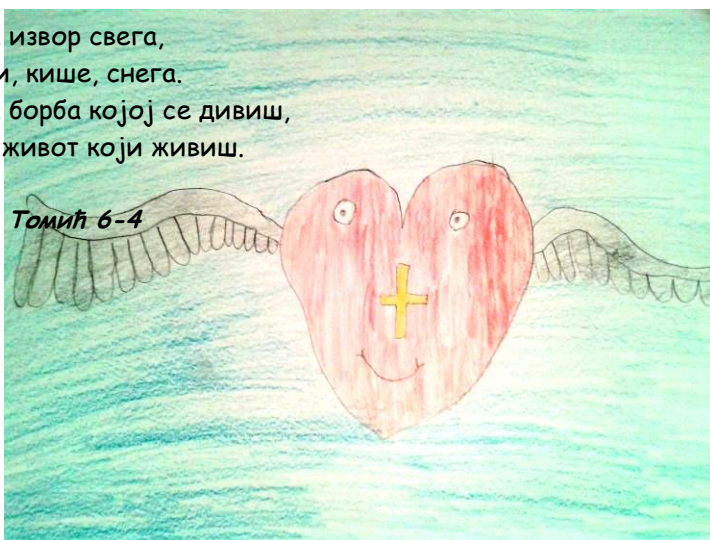 извор свега,
и, кише, снега.
борба којој се дивиш,
живот који живиш.
Томић 6-4